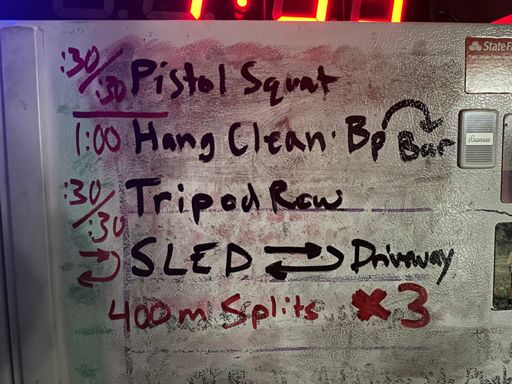 :30/:30 Pistol Squat
1:00 Hang Clean · Bp Bar
:30/:30 Tripod Row
SLED Driveway
400m Splits × 3
State Fa